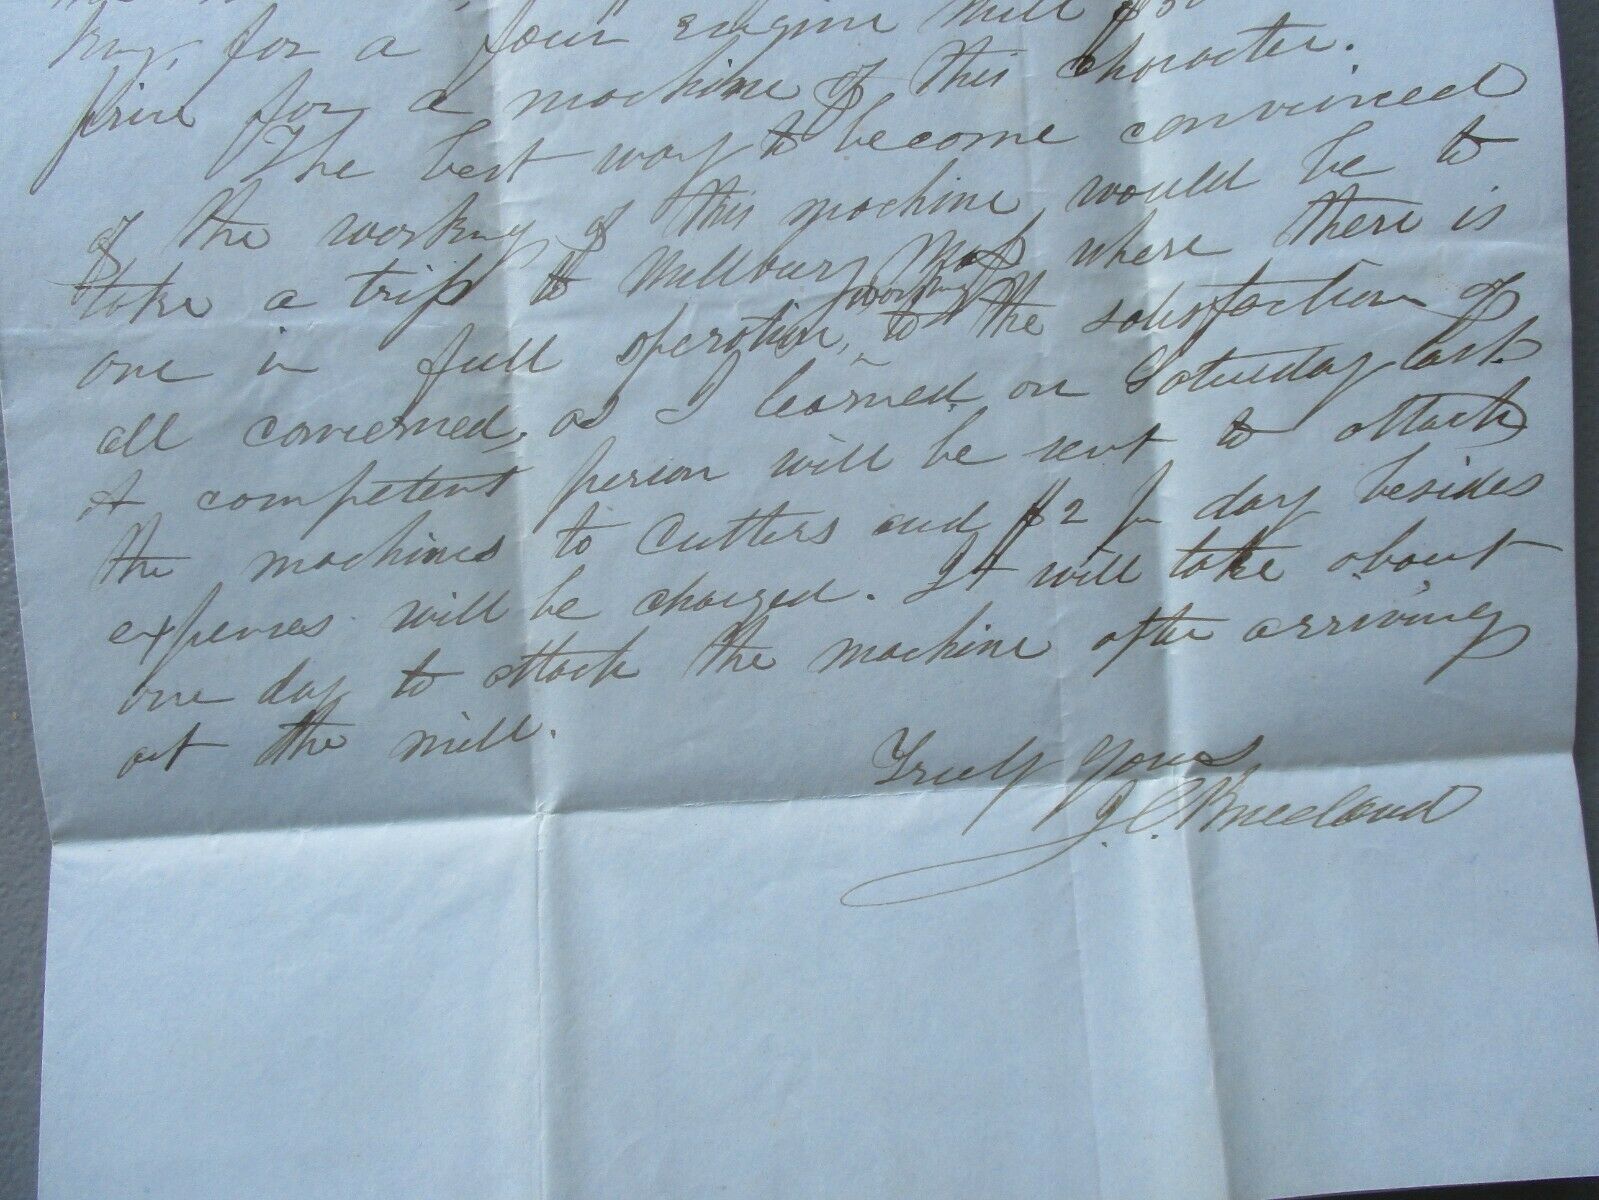 for a four engine Mill $50
price for a machine of this character.
The best way to become convinced
of the working of this machine would be to
take a trip to Millbury Mass where there is
one in full operation, working to the satisfaction of
all concerned, as I learned on Saturday last.
A competent person will be sent to attach
the machines to cutters and $2 pr day besides
expenses will be charged. It will take about
one day to attach the machine after arriving
at the mill.
Truly Yours
J. C.